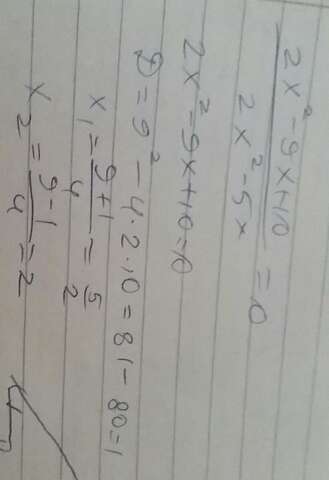 2x²-9x+10
2x²-5x =0
2x²-9x+10=0
D=9²-4·2·10=81-80=1
x₁=9+1/4=5/2
x₂=9-1/4=2